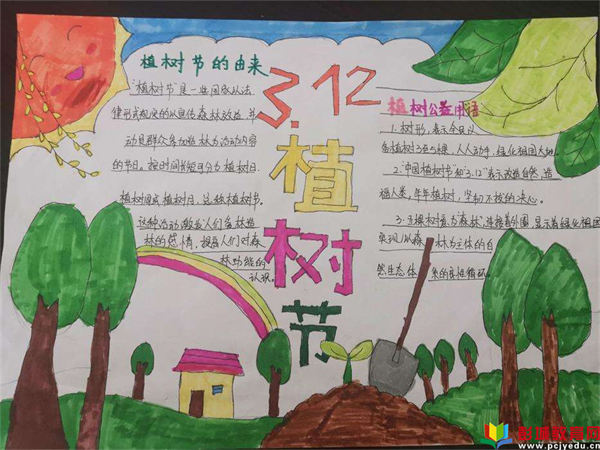 植树节的由来
"植树节"是一些国家以法
律形式规定的以宣传森林效益,并
动员群众参加造林为活动内容
的节日。按时间长短可分为植树日、
植树周或植树月,总称植树节。
这种活动,激发人们爱林造
林的感情,提高人们对森
林功能的
认识。
3.12
植
树
节
植树公益用语
1.树形,表示全民义
务植树3至5棵,人人动手,绿化祖国大地。
2."中国植树节"和"3.12"表示改造自然,造
福人类,年年植树,坚韧不拔的决心。
3.五棵树意为"森林",连接着外圈,显示着绿化祖国
实现以森林为主体的自
然生态体 的良性循环。
射城教育网
www.pcjyedu.cn